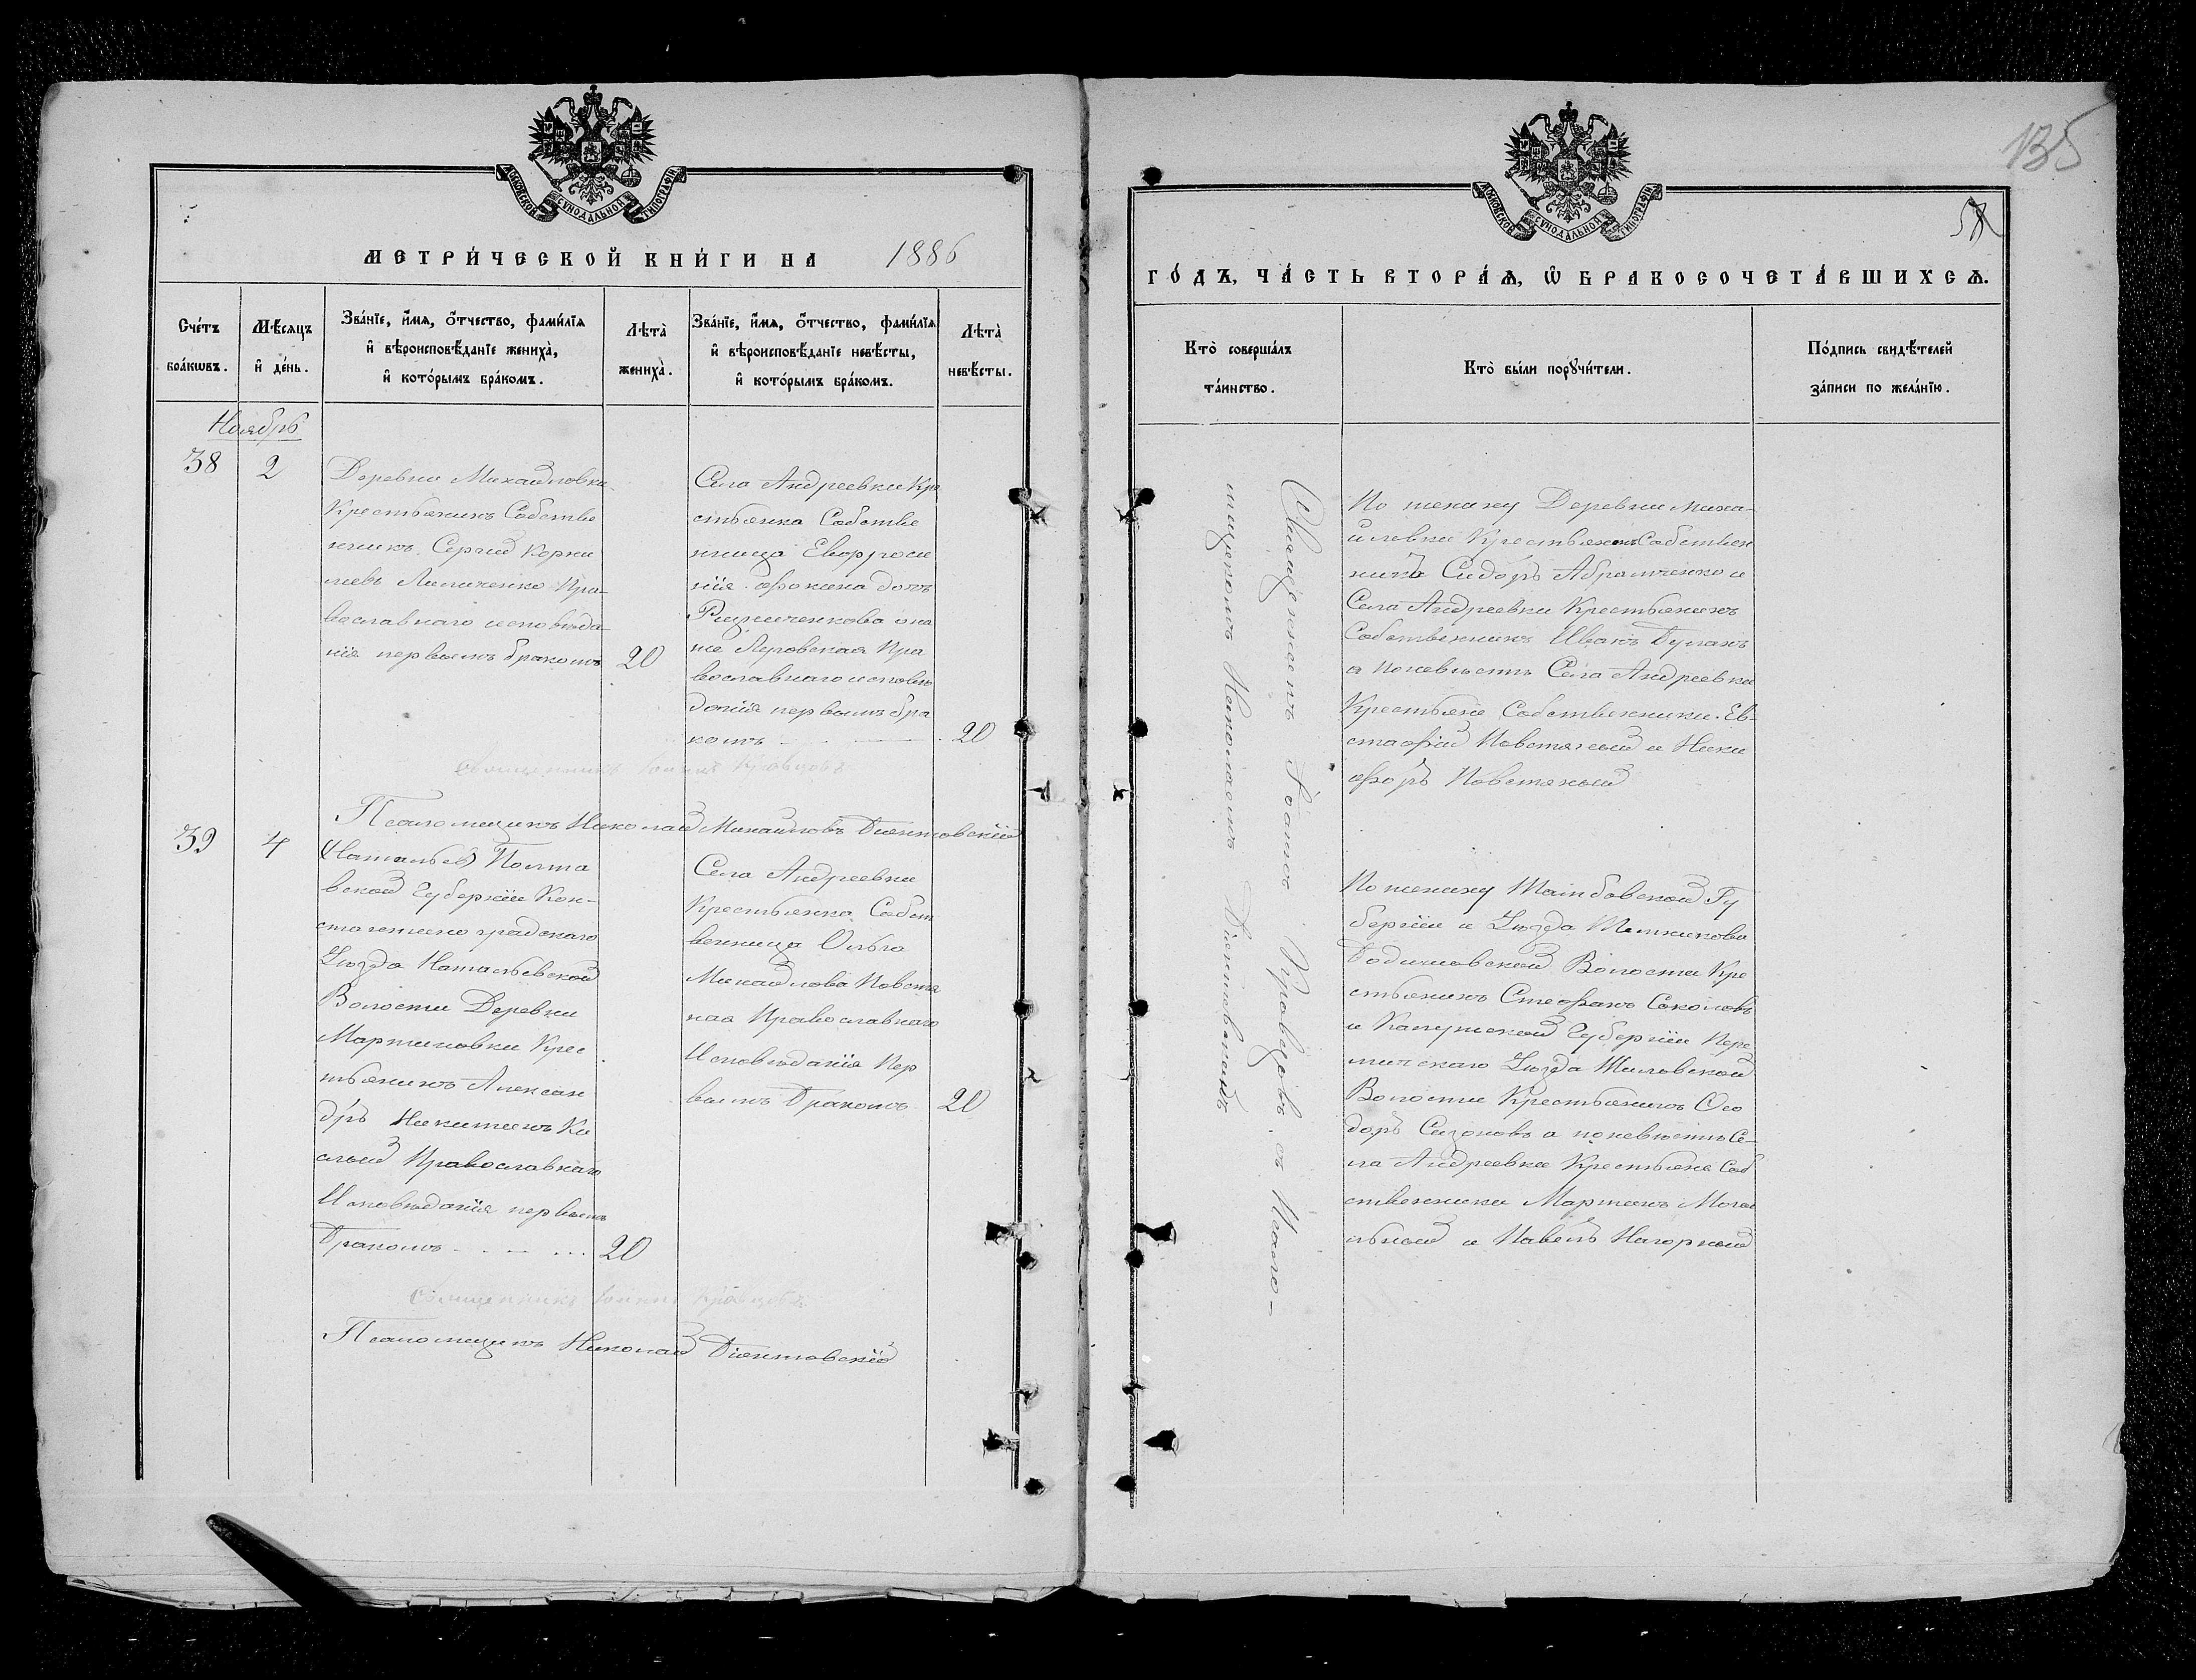 135
МОСКОВСКОЙ СУНОДАЛЬНОЙ ТИПОГРАФІИ
МЕТРИ́ЧЕСКОЙ КНИ́ГИ НА 1886
Сче́тъ бра́кωвъ.
Мѣ́сяцъ и҆ де́нь.
Зва́нїе, и҆́мя, ѻ҆́тчество, фами́лїя
и҆ вѣроисповѣ́данїе жениха̀,
и҆ кото́рымъ бра́комъ.
Лѣта̀ жениха̀.
Зва́нїе, и҆́мя, ѻ҆́тчество, фами́лїя
и҆ вѣроисповѣ́данїе невѣ́сты,
и҆ кото́рымъ бра́комъ.
Лѣта̀ невѣ́сты.
Ноябрь
38
2
Деревни Михайловки
Крестьянинъ Собстве
нникъ Сергій Корни
ліевъ Лиличенко Пра-
вославнаго исповѣда-
нія первымъ бракомъ
20
Села Андреевки Кре
стьянка Собстве
нница Евфроси
нія Фокина дочь
она
же Перовская Пра
вославнаго исповѣ
данія первымъ бра
комъ
20
Священникъ Іоаннъ Кравцовъ
Псаломщикъ Николай Михайловъ Діентовскій
39
4
(Натальев) Полта
вской Губерніи Кон-
стантиноградскаго
Уѣзда Натальевской
Волости Деревни
Мартиновки Крес
тьянинъ Алексан
дръ Никитинъ Ки
слый Православнаго
Исповѣданія первымъ
Бракомъ
20
Села Андреевки
Крестьянка Собст
венница Ольга
Михайлова Повстя
ная Православнаго
Исповѣданія Пер
вымъ Бракомъ
20
Священникъ Іоаннъ Кравцовъ
Псаломщикъ Николай Діентовскій
МОСКОВСКОЙ СУНОДАЛЬНОЙ ТИПОГРАФІИ
ГО́ДЪ, ЧА́СТЬ ВТОРА́Ѧ, Ѡ҆ БРАКОСОЧЕТА́ВШИХСѦ.
Кто̀ соверша́лъ та́инство.
Кто̀ бы́ли порꙋчи́тели.
По́дпись свидѣ́телей за́писи по жела́нїю.
Священникъ Іоаннъ Кравцовъ съ Псало-
мщикомъ Николаемъ Діентовскимъ
По жениху Деревни Миха-
йловки Крестьяне Собствен
ники Сидоръ Абрамченко и
Села Андреевки Крестьянинъ
Собственникъ Иванъ Дуланъ
а по невѣстѣ Села Андреевки
Крестьяне Собственники Ев-
стафій Повстяный и Ники
форъ Повстяный
По жениху Тамбовской Гу
берніи и Уѣзда
Волости Кре
стьянинъ Стефанъ Соколовъ
и Калужской Губерніи Пере
мышскаго Уѣзда
Волости Крестьянинъ Ѳео
доръ Сизоновъ а по невѣстѣ Се-
ла Андреевки Крестьяне Соб
ственники Мартинъ Моги
льный и Павелъ Нагорный